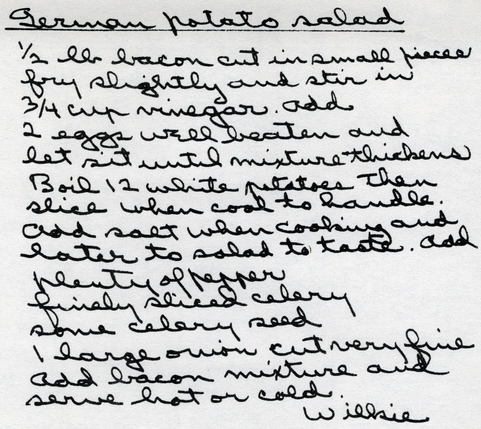 German potato salad
1/2 lb bacon cut in small pieces
fry slightly and stir in
3/4 cup vinegar. add
2 eggs well beaten and
let sit until mixture thickens
Boil 12 white potatoes then
slice when cool to handle.
add salt when cooking and
later to salad to taste. add
plenty of pepper
finely sliced celery
some celery seed
1 large onion cut very fine
add bacon mixture and
serve hot or cold.
Willsie